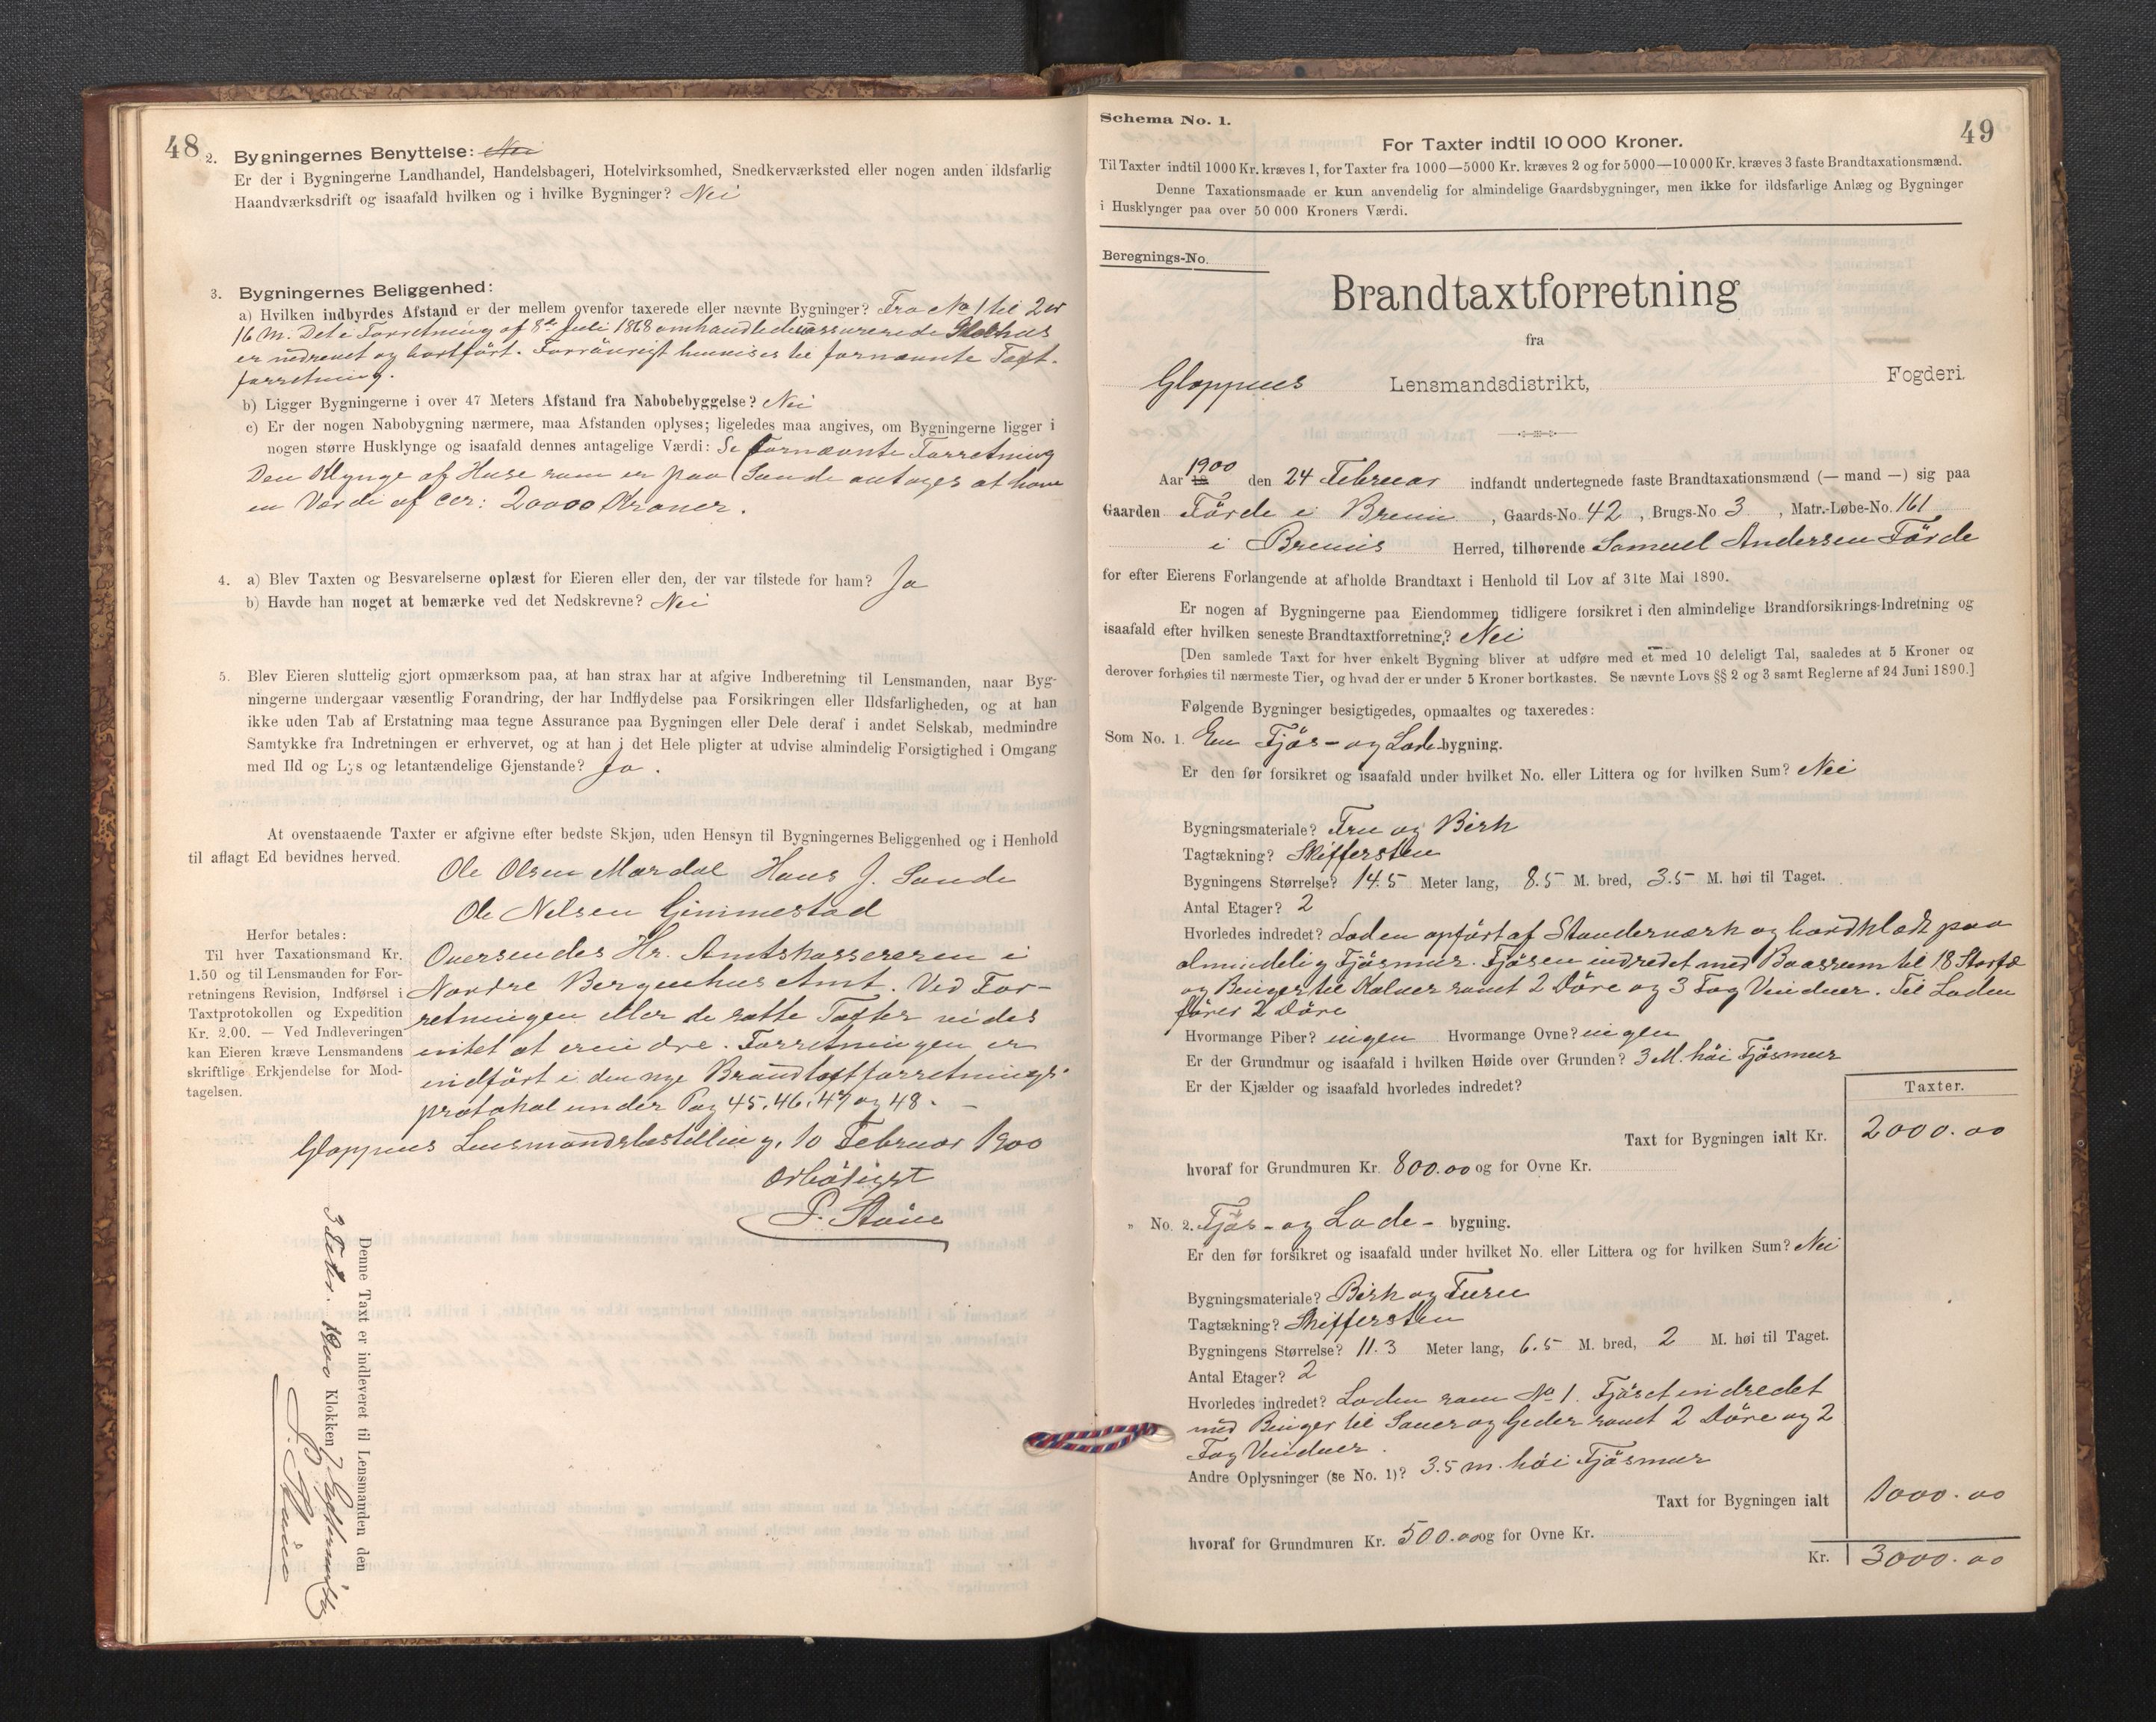 48
2. Bygningernes Benyttelse: Nei
Er der i Bygningerne Landhandel, Handelsbageri, Hotelvirksomhed, Snedkerværksted eller nogen anden ildsfarlig
Haandværksdrift og isaafald hvilken og i hvilke Bygninger? Nei
3. Bygningernes Beliggenhed:
a) Hvilken indbyrdes Afstand er der mellem ovenfor taxerede eller nævnte Bygninger? Fra No 1 til 2 er
16 M. Det i Forretning af 8de Juli 1868 omhandlede uassurerede
er nedrevet og bortført. Forøvrigt henvises til fornævnte Taxt-
forretning.
b) Ligger Bygningerne i over 47 Meters Afstand fra Nabobebyggelse? Nei
c) Er der nogen Nabobygning nærmere, maa Afstanden oplyses; ligeledes maa angives, om Bygningerne ligger i
nogen større Husklynge og isaafald dennes antagelige Værdi: Se fornævnte Forretning
Den Klynge af Huse som er paa Sande antages at have
en Værdi af cer: 20000 Kroner.
4. a) Blev Taxten og Besvarelserne oplæst for Eieren eller den, der var tilstede for ham? Ja
b) Havde han noget at bemærke ved det Nedskrevne? Nei
5. Blev Eieren sluttelig gjort opmærksom paa, at han strax har at afgive Indberetning til Lensmanden, naar Byg-
ningerne undergaar væsentlig Forandring, der har Indflydelse paa Forsikringen eller Ildsfarligheden, og at han
ikke uden Tab af Erstatning maa tegne Assurance paa Bygningen eller Dele deraf i andet Selskab, medmindre
Samtykke fra Indretningen er erhvervet, og at han i det Hele pligter at udvise almindelig Forsigtighed i Omgang
med Ild og Lys og letantændelige Gjenstande? Ja.
At ovenstaaende Taxter er afgivne efter bedste Skjøn, uden Hensyn til Bygningernes Beliggenhed og i Henhold
til aflagt Ed bevidnes herved.
Ole Olsen Mardal Hans J. Sande
Ole Nelsen Gimmestad
Herfor betales:
Til hver Taxationsmand Kr.
1.50 og til Lensmanden for For-
retningens Revision, Indførsel i
Taxtprotokollen og Expedition
Kr. 2.00. — Ved Indleveringen
kan Eieren kræve Lensmandens
skriftlige Erkjendelse for Mod-
tagelsen.
Oversendes Hr. Amtskassereren i
Nordre Bergenhus Amt. Ved For-
retningen eller de satte Taxter vides
intet at erindre. Forretningen er
indført i den nye Brandtaxtforretnings-
protokol under Pag 45, 46, 47 og 48. –
Gloppens Lensmandsbestilling, 10 Februar 1900
Ærbødigst
P. Støve
Denne Taxt er indleveret til Lensmanden den
3 Febr. 1900 Klokken 7 Eftermiddag
P. Støve
Schema No. 1.
49
For Taxter indtil 10 000 Kroner.
Til Taxter indtil 1000 Kr. kræves 1, for Taxter fra 1000—5000 Kr. kræves 2 og for 5000—10 000 Kr. kræves 3 faste Brandtaxationsmænd.
Denne Taxationsmaade er kun anvendelig for almindelige Gaardsbygninger, men ikke for ildsfarlige Anlæg og Bygninger
i Husklynger paa over 50 000 Kroners Værdi.
Beregnings-No.
Brandtaxtforretning
fra
Gloppens Lensmandsdistrikt, Fogderi.
Aar 18 1900 den 24 Februar indfandt undertegnede faste Brandtaxationsmænd (— mand —) sig paa
Gaarden Førde i Breim, Gaards-No. 42, Brugs-No 3, Matr.-Løbe-No. 161
i Breims Herred, tilhørende Samuel Andersen Førde
for efter Eierens Forlangende at afholde Brandtaxt i Henhold til Lov af 31te Mai 1890.
Er nogen af Bygningerne paa Eiendommen tidligere forsikret i den almindelige Brandforsikrings-Indretning og
isaafald efter hvilken seneste Brandtaxtforretning? Nei
[Den samlede Taxt for hver enkelt Bygning bliver at udføre med et med 10 deleligt Tal, saaledes at 5 Kroner og
derover forhøies til nærmeste Tier, og hvad der er under 5 Kroner bortkastes. Se nævnte Lovs §§ 2 og 3 samt Reglerne af 24 Juni 1890.]
Følgende Bygninger besigtigedes, opmaaltes og taxeredes:
Som No. 1. En Fjøs- og Lade-bygning.
Er den før forsikret og isaafald under hvilket No. eller Littera og for hvilken Sum? Nei
Bygningsmateriale? Fru og Birk
Tagtækning? Skiffersten
Bygningens Størrelse? 14.5 Meter lang, 8.5 M. bred, 3.5 M. høi til Taget.
Antal Etager? 2
Hvorledes indredet? Laden opført af Stenderværk og bordklædt paa
almindelig Fjøsmur. Fjøsen indredet med Baasrum til 18 Storfæ
og Binger til Kalver samt 2 Døre og 3 Fag Vinduer. Til Laden
fører 2 Døre
Hvormange Piber? ingen Hvormange Ovne? ingen
Er der Grundmur og isaafald i hvilken Høide over Grunden? 3 M. høi Fjøsmur
Er der Kjælder og isaafald hvorledes indredet?
Taxter.
Taxt for Bygningen ialt Kr. 2000.00
hvoraf for Grundmuren Kr. 800.00 og for Ovne Kr.
" No. 2. Fjøs- og Lade- bygning.
Er den før forsikret og isaafald under hvilket No. eller Littera og for hvilken Sum? Nei
Bygningsmateriale? Birk og Furu
Tagtækning? Skiffersten
Bygningens Størrelse? 11.3 Meter lang, 6.5 M. bred, 2 M. høi til Taget.
Antal Etager? 2
Hvorledes indredet? Laden som No 1. Fjøset indredet
med Binger til Sauer og Geder samt 2 Døre og 2
Fag Vinduer.
Andre Oplysninger (se No. 1)? 3.5 m. høi Fjøsmur
Taxt for Bygningen ialt 1000.00
hvoraf for Grundmuren Kr. 500.00 og for Ovne Kr.
Kr. 3000.00